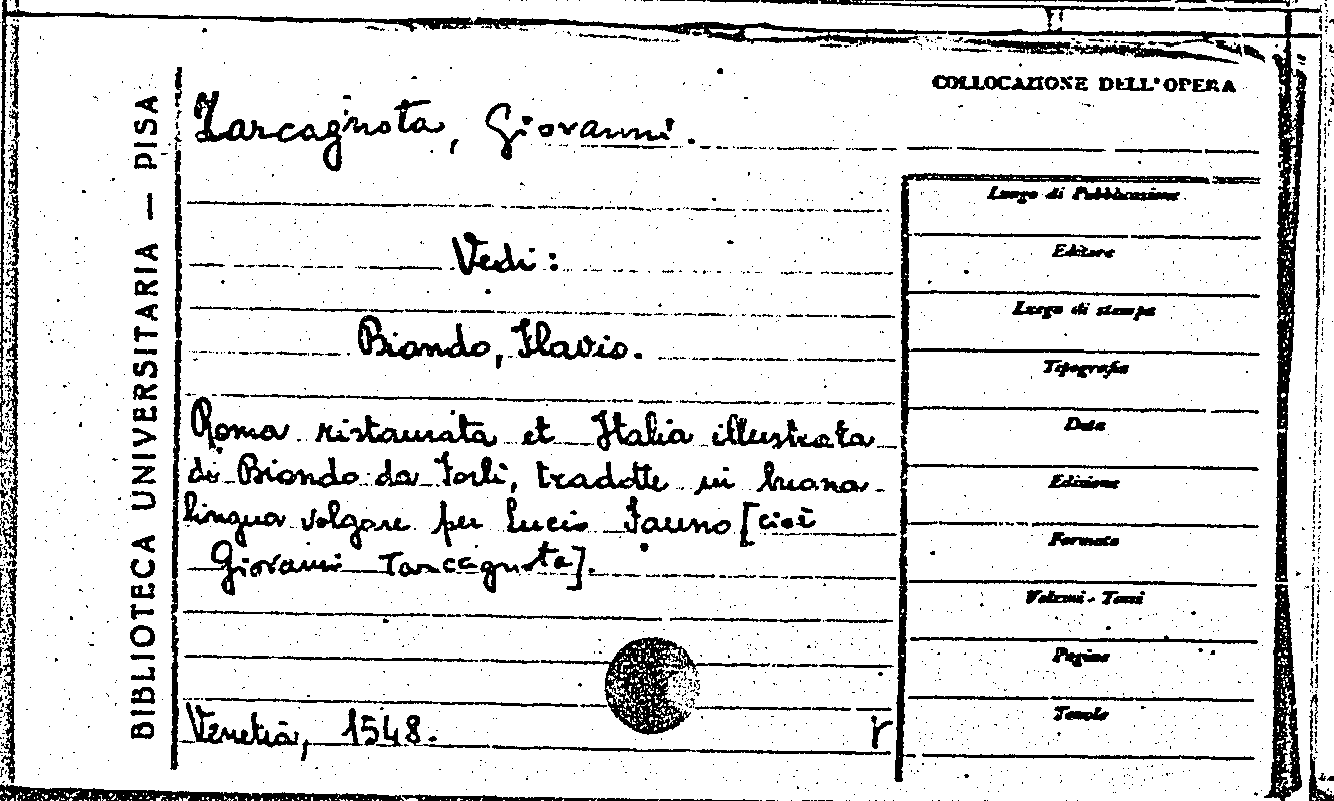 BIBLIOTECA UNIVERSITARIA — PISA
COLLOCAZIONE DELL'OPERA
Tarcagnota, Giovanni.
Vedi:
Biondo, Flavio.
Roma ristaurata et Italia illustrata
di Biondo da Forlì, tradotte in buona
lingua volgare per Lucio Fauno [cioè
Giovanni Tarcagnota].
Venetia, 1548.
r
Luogo di Pubblicazione
Editore
Luogo di stampa
Tipografia
Data
Edizione
Formato
Volumi - Tomi
Pagine
Tavole